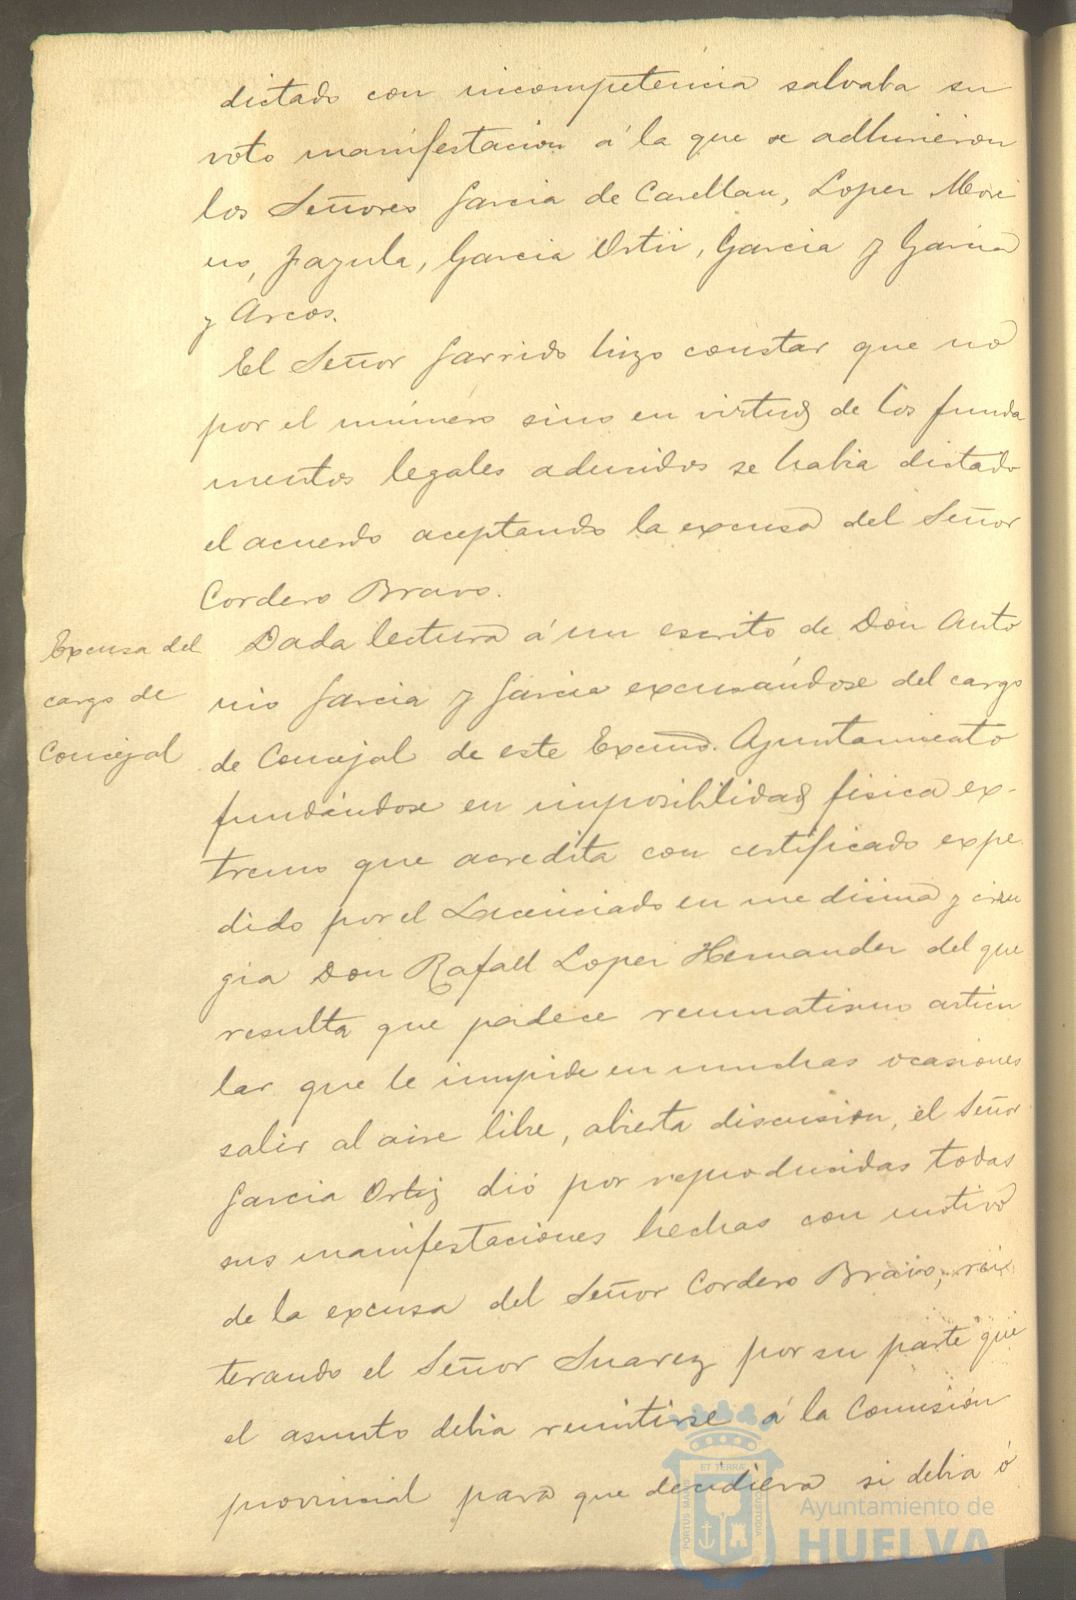 dictado con incompetencia salvaba su
voto manifestacion á la que se adhirieron
los Señores Garcia de Casellau, Lopez More
no, Jazula, Garcia Ortiz, Garcia y Garcia
y Arcos.
El Señor Garrido hizo constar que no
por el número sino en virtud de los funda
mentos legales aducidos se habia dictado
el acuerdo aceptando la excusa del Señor
Cordero Bravo.
Excusa del
cargo de
Concejal
Dada lectura á un escrito de Don Anto
nio Garcia y Garcia excusándose del cargo
de Concejal de este Excmo. Ayuntamiento
fundándose en imposibilidad fisica ex-
tremo que acredita con certificado expe
dido por el Licenciado en medicina y ciru
gia Don Rafael Lopez Hernandez del que
resulta que padece reumatismo articu
lar que le impide en muchas ocasiones
salir al aire libre, abierta discusion, el Señor
Garcia Ortiz dió por reproducidas todas
sus manifestaciones hechas con motivo
de la excusa del Señor Cordero Bravo, rei
terando el Señor Suarez por su parte que
el asunto debia remitirse á la Comisión
provincial para que decidiera si debia ó
ET TERRÆ
PORTUS MARIS
CUSTODIA
Ayuntamiento de
HUELVA